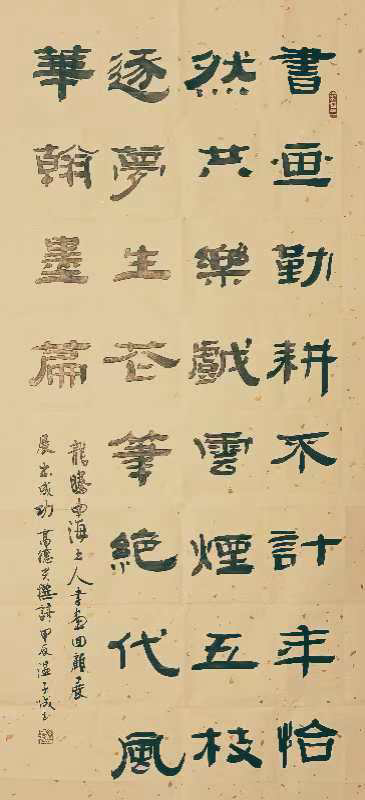 書画勤耕不計年怡
然共樂戲雲煙五枝
逐夢生花筆絕代風
華翰墨篇
龍騰申海五人書畫回顧展
展出成功 高德 撰詩 甲辰温子成書